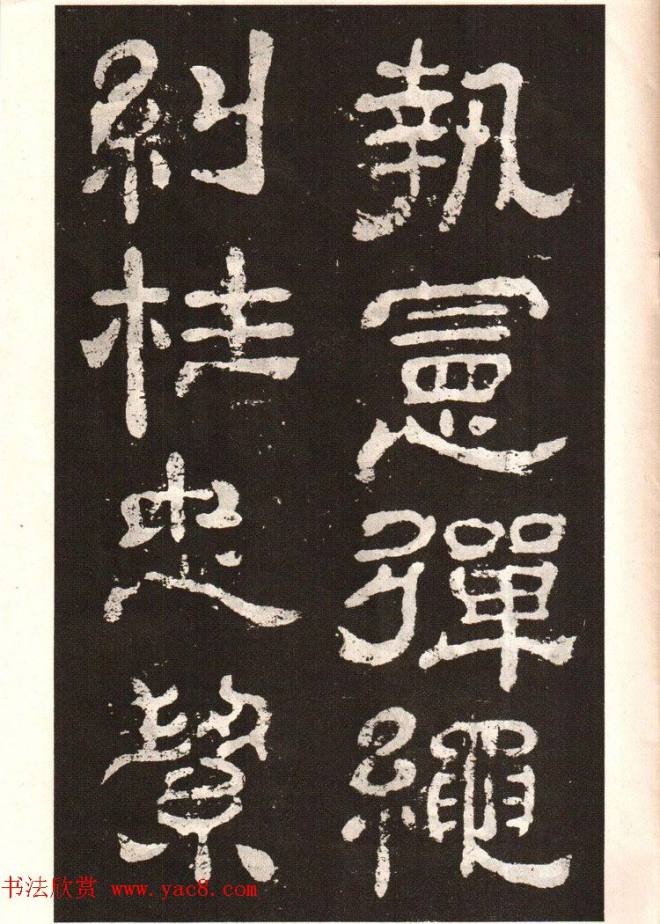 執憲彈繩
糾枉忠絜
书法欣赏 www.yac8.com